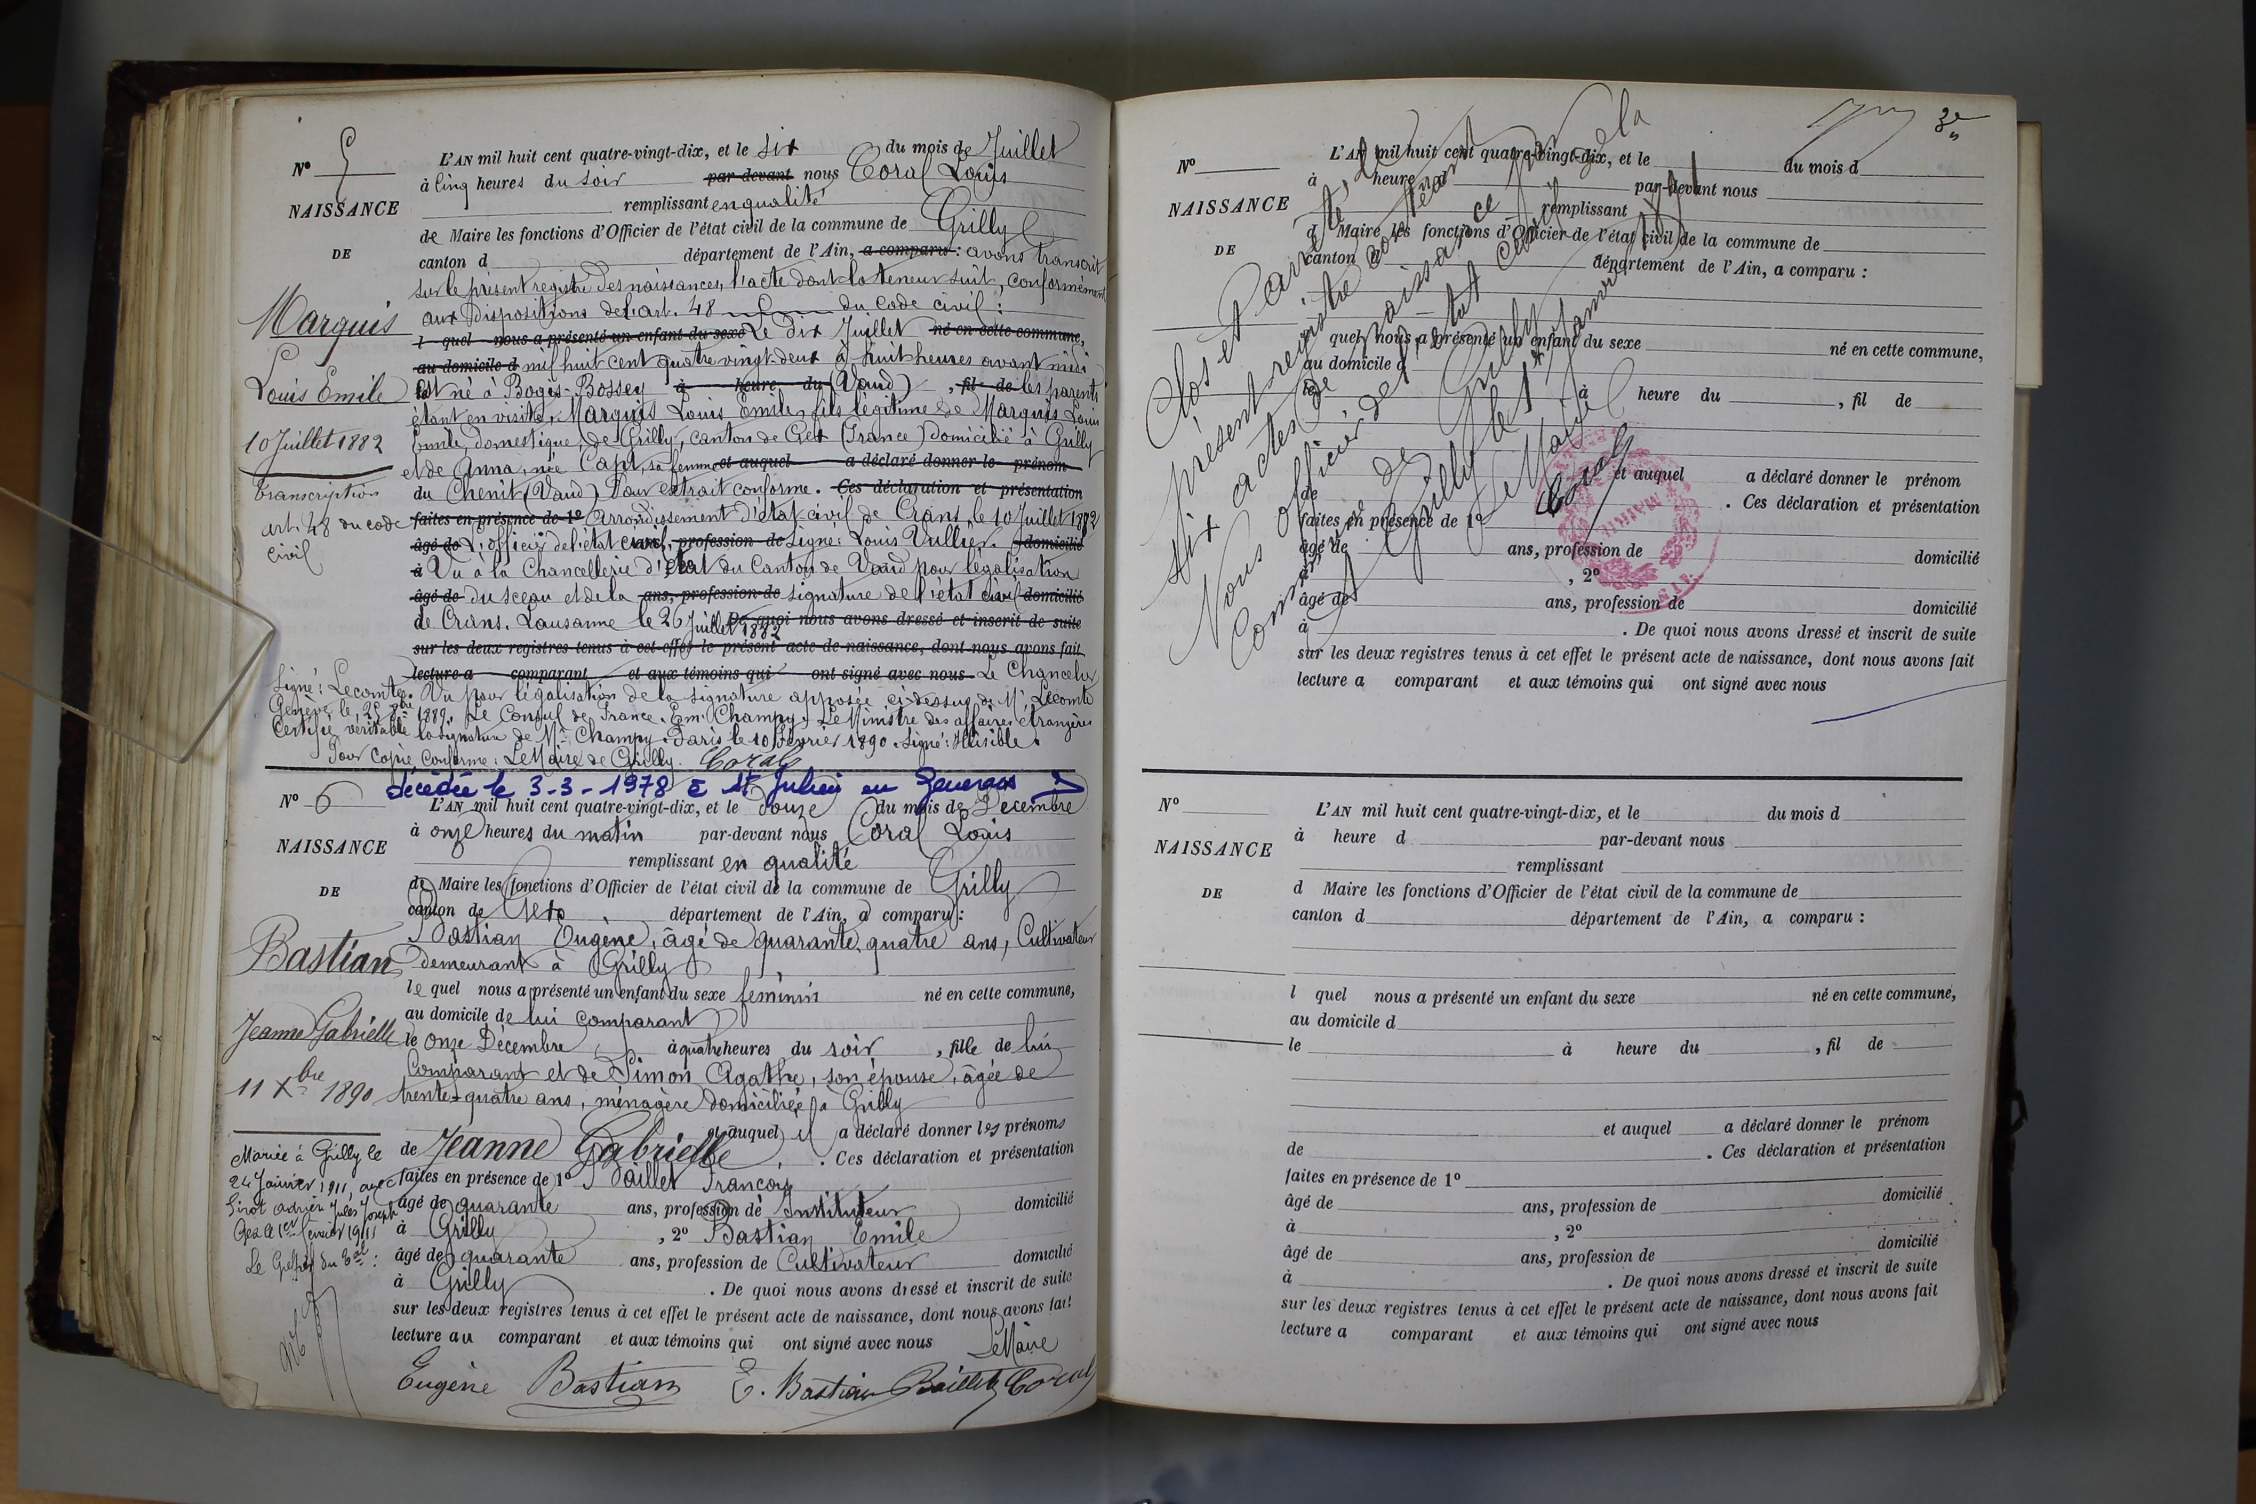 N° 5
NAISSANCE
DE
Marquis
Louis Emile
10 Juillet 1882
transcription
art. 48 du code
civil
L'AN mil huit cent quatre-vingt-dix, et le six du mois de Juillet
à Cinq heures du soir par-devant nous Coral Louis
remplissant en qualité
de Maire les fonctions d'Officier de l'état civil de la commune de Grilly
canton d département de l'Ain, a comparu : avons transcrit
sur le présent registre des naissances, l'acte dont la teneur suit, conformément
aux dispositions de l'art. 48 du code civil :
l quel nous a présenté un enfant du sexe Le dix Juillet né en cette commune,
au domicile d mil huit cent quatre vingt-deux à huit heures avant midi
est né à Bogis-Bossey à heure du (Vaud) , fil de les parents
étant en visite, Marquis Louis Emile, fils légitime de Marquis Louis
Emile, domestique, de Grilly, canton de Gex (France) domicilié à Grilly
et de Anna, née Capt, sa femme et auquel a déclaré donner le prénom
du Chenit (Vaud) Pour extrait conforme. Ces déclaration et présentation
faites en présence de 1° Arrondissement d'état civil de Crans, le 10 Juillet 1882
âgé de L'officier de l'état civil, profession de Signé : Louis Vullier. domicilié
à Vu à la Chancellerie d'état du Canton de Vaud pour légalisation
âgé de du sceau et de la ans, profession de signature de l'état civil domicilié
de Crans. Lausanne le 26 Juillet 1882 De quoi nous avons dressé et inscrit de suite
sur les deux registres tenus à cet effet le présent acte de naissance, dont nous avons fait
lecture a comparant et aux témoins qui ont signé avec nous Le Chancelier
Signé : Lecomte. Vu pour légalisation de la signature apposée ci-dessus de Mr Lecomte
Genève, le 1889. Le Consul de France. Em. Champy. Le Ministre des affaires étrangères
Certifie véritable la signature de Mr Champy. Paris le 10 février 1890. Signé : Illisible.
Pour Copie Conforme : Le Maire de Grilly. Coral
décédée le 3-3-1978 à St Julien en Genevois
N° 6
NAISSANCE
DE
Bastian
Jeanne Gabrielle
11 Xbre 1890
Mariée à Grilly le
24 Janvier 1911, avec
Adrien Jules Joseph
Gex le 1er février 1911
Le Greffier du Tal :
L'AN mil huit cent quatre-vingt-dix, et le douze du mois de Décembre
à onze heures du matin par-devant nous Coral Louis
remplissant en qualité
de Maire les fonctions d'Officier de l'état civil de la commune de Grilly
canton de Gex département de l'Ain, a comparu :
Bastian Eugène, âgé de quarante quatre ans, Cultivateur
demeurant à Grilly
le quel nous a présenté un enfant du sexe féminin né en cette commune,
au domicile de lui comparant
le onze Décembre à quatre heures du soir , fille de lui
Comparant et de Simon Agathe, son épouse, âgée de
trente-quatre ans, ménagère domiciliée à Grilly
et auquel il a déclaré donner les prénoms
de Jeanne Gabrielle . Ces déclaration et présentation
faites en présence de 1° Baillet François
âgé de quarante ans, profession de Instituteur domicilié
à Grilly , 2° Bastian Emile
âgé de quarante ans, profession de Cultivateur domicilié
à Grilly . De quoi nous avons dressé et inscrit de suite
sur les deux registres tenus à cet effet le présent acte de naissance, dont nous avons fait
lecture au comparant et aux témoins qui ont signé avec nous
Le Maire
Eugène Bastian E. Bastian Baillet Coral
N°
NAISSANCE
DE
L'AN mil huit cent quatre-vingt-dix, et le du mois d
à heure d par-devant nous
remplissant
d Maire les fonctions d'Officier de l'état civil de la commune de
canton d département de l'Ain, a comparu :
l quel nous a présenté un enfant du sexe né en cette commune,
au domicile d
le à heure du , fil de
et auquel a déclaré donner le prénom
de . Ces déclaration et présentation
faites en présence de 1°
âgé de ans, profession de domicilié
à , 2°
âgé de ans, profession de domicilié
à . De quoi nous avons dressé et inscrit de suite
sur les deux registres tenus à cet effet le présent acte de naissance, dont nous avons fait
lecture a comparant et aux témoins qui ont signé avec nous
Clos et arrêté, le
présent registre contenant
six actes de naissance
Nous officier de l'état civil
de Grilly
Grilly le 1er Janvier
Le Maire
Coral
MAIRIE
N°
NAISSANCE
DE
L'AN mil huit cent quatre-vingt-dix, et le du mois d
à heure d par-devant nous
remplissant
d Maire les fonctions d'Officier de l'état civil de la commune de
canton d département de l'Ain, a comparu :
l quel nous a présenté un enfant du sexe né en cette commune,
au domicile d
le à heure du , fil de
et auquel a déclaré donner le prénom
de . Ces déclaration et présentation
faites en présence de 1°
âgé de ans, profession de domicilié
à , 2°
âgé de ans, profession de domicilié
à . De quoi nous avons dressé et inscrit de suite
sur les deux registres tenus à cet effet le présent acte de naissance, dont nous avons fait
lecture a comparant et aux témoins qui ont signé avec nous